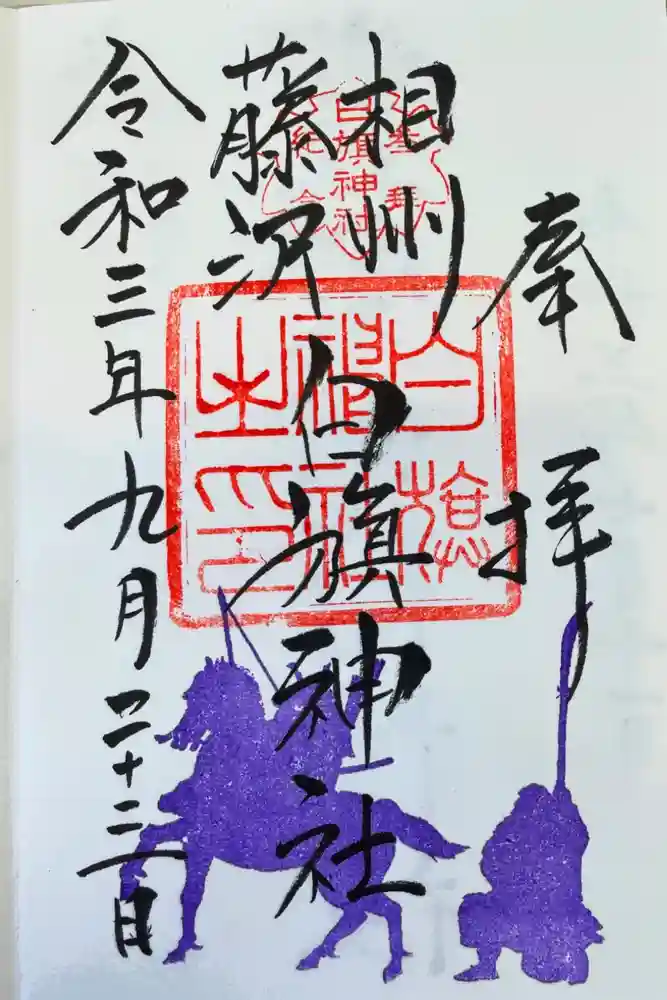 奉拝
相州
藤沢
白旗神社
令和三年九月二十二日
白旗神社
参拝
白旗
神社
之印